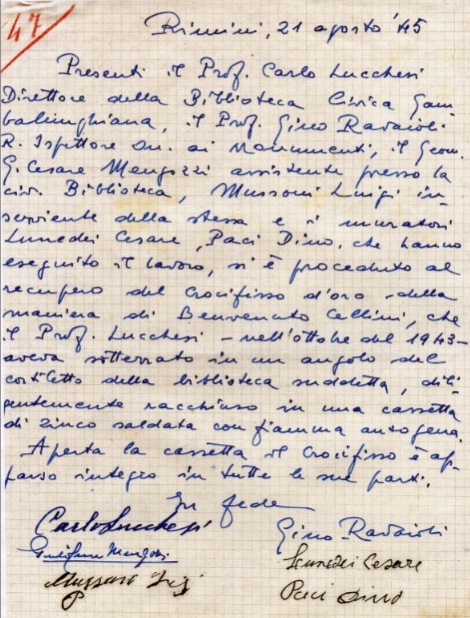 47
Rimini, 21 agosto '45
Presenti il Prof. Carlo Lucchesi
Direttore della Biblioteca Civica Gam-
balunghiana, il Prof. Gino Ravaioli
R. Ispettore On. ai Monumenti, il Geom.
G. Cesare Mengozzi assistente presso la
civ. Biblioteca, Mussoni Luigi in-
serviente della stessa e i muratori
Lunedei Cesare, Paci Dino, che hanno
eseguito il lavoro, si è proceduto al
recupero del Crocifisso d'oro - della
maniera di Benvenuto Cellini, che
il Prof. Lucchesi - nell'ottobre del 1943 -
aveva sotterrato in un angolo del
cortiletto della biblioteca suddetta, dili-
gentemente racchiuso in una cassetta
di zinco saldata con fiamma autogena.
Aperta la cassetta il Crocifisso è ap-
parso integro in tutte le sue parti.
In fede
Carlo Lucchesi
Gino Ravaioli
Mengozzi
Lunedei Cesare
Mussoni Luigi
Paci Dino